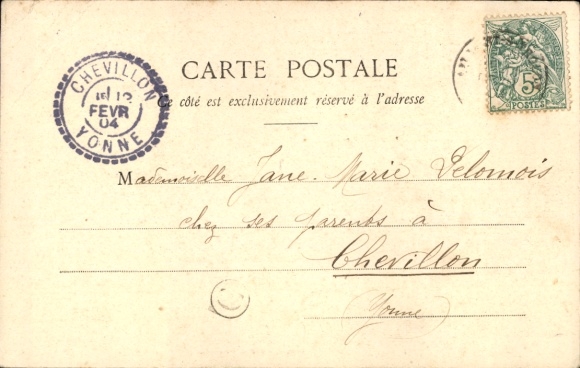 CHEVILLON
12
FEVR
04
YONNE
CARTE POSTALE
Ce côté est exclusivement réservé à l'adresse
5
POSTES
Mademoiselle Jane-Marie Delomois
chez ses parents à
Chevillon
(Yonne)